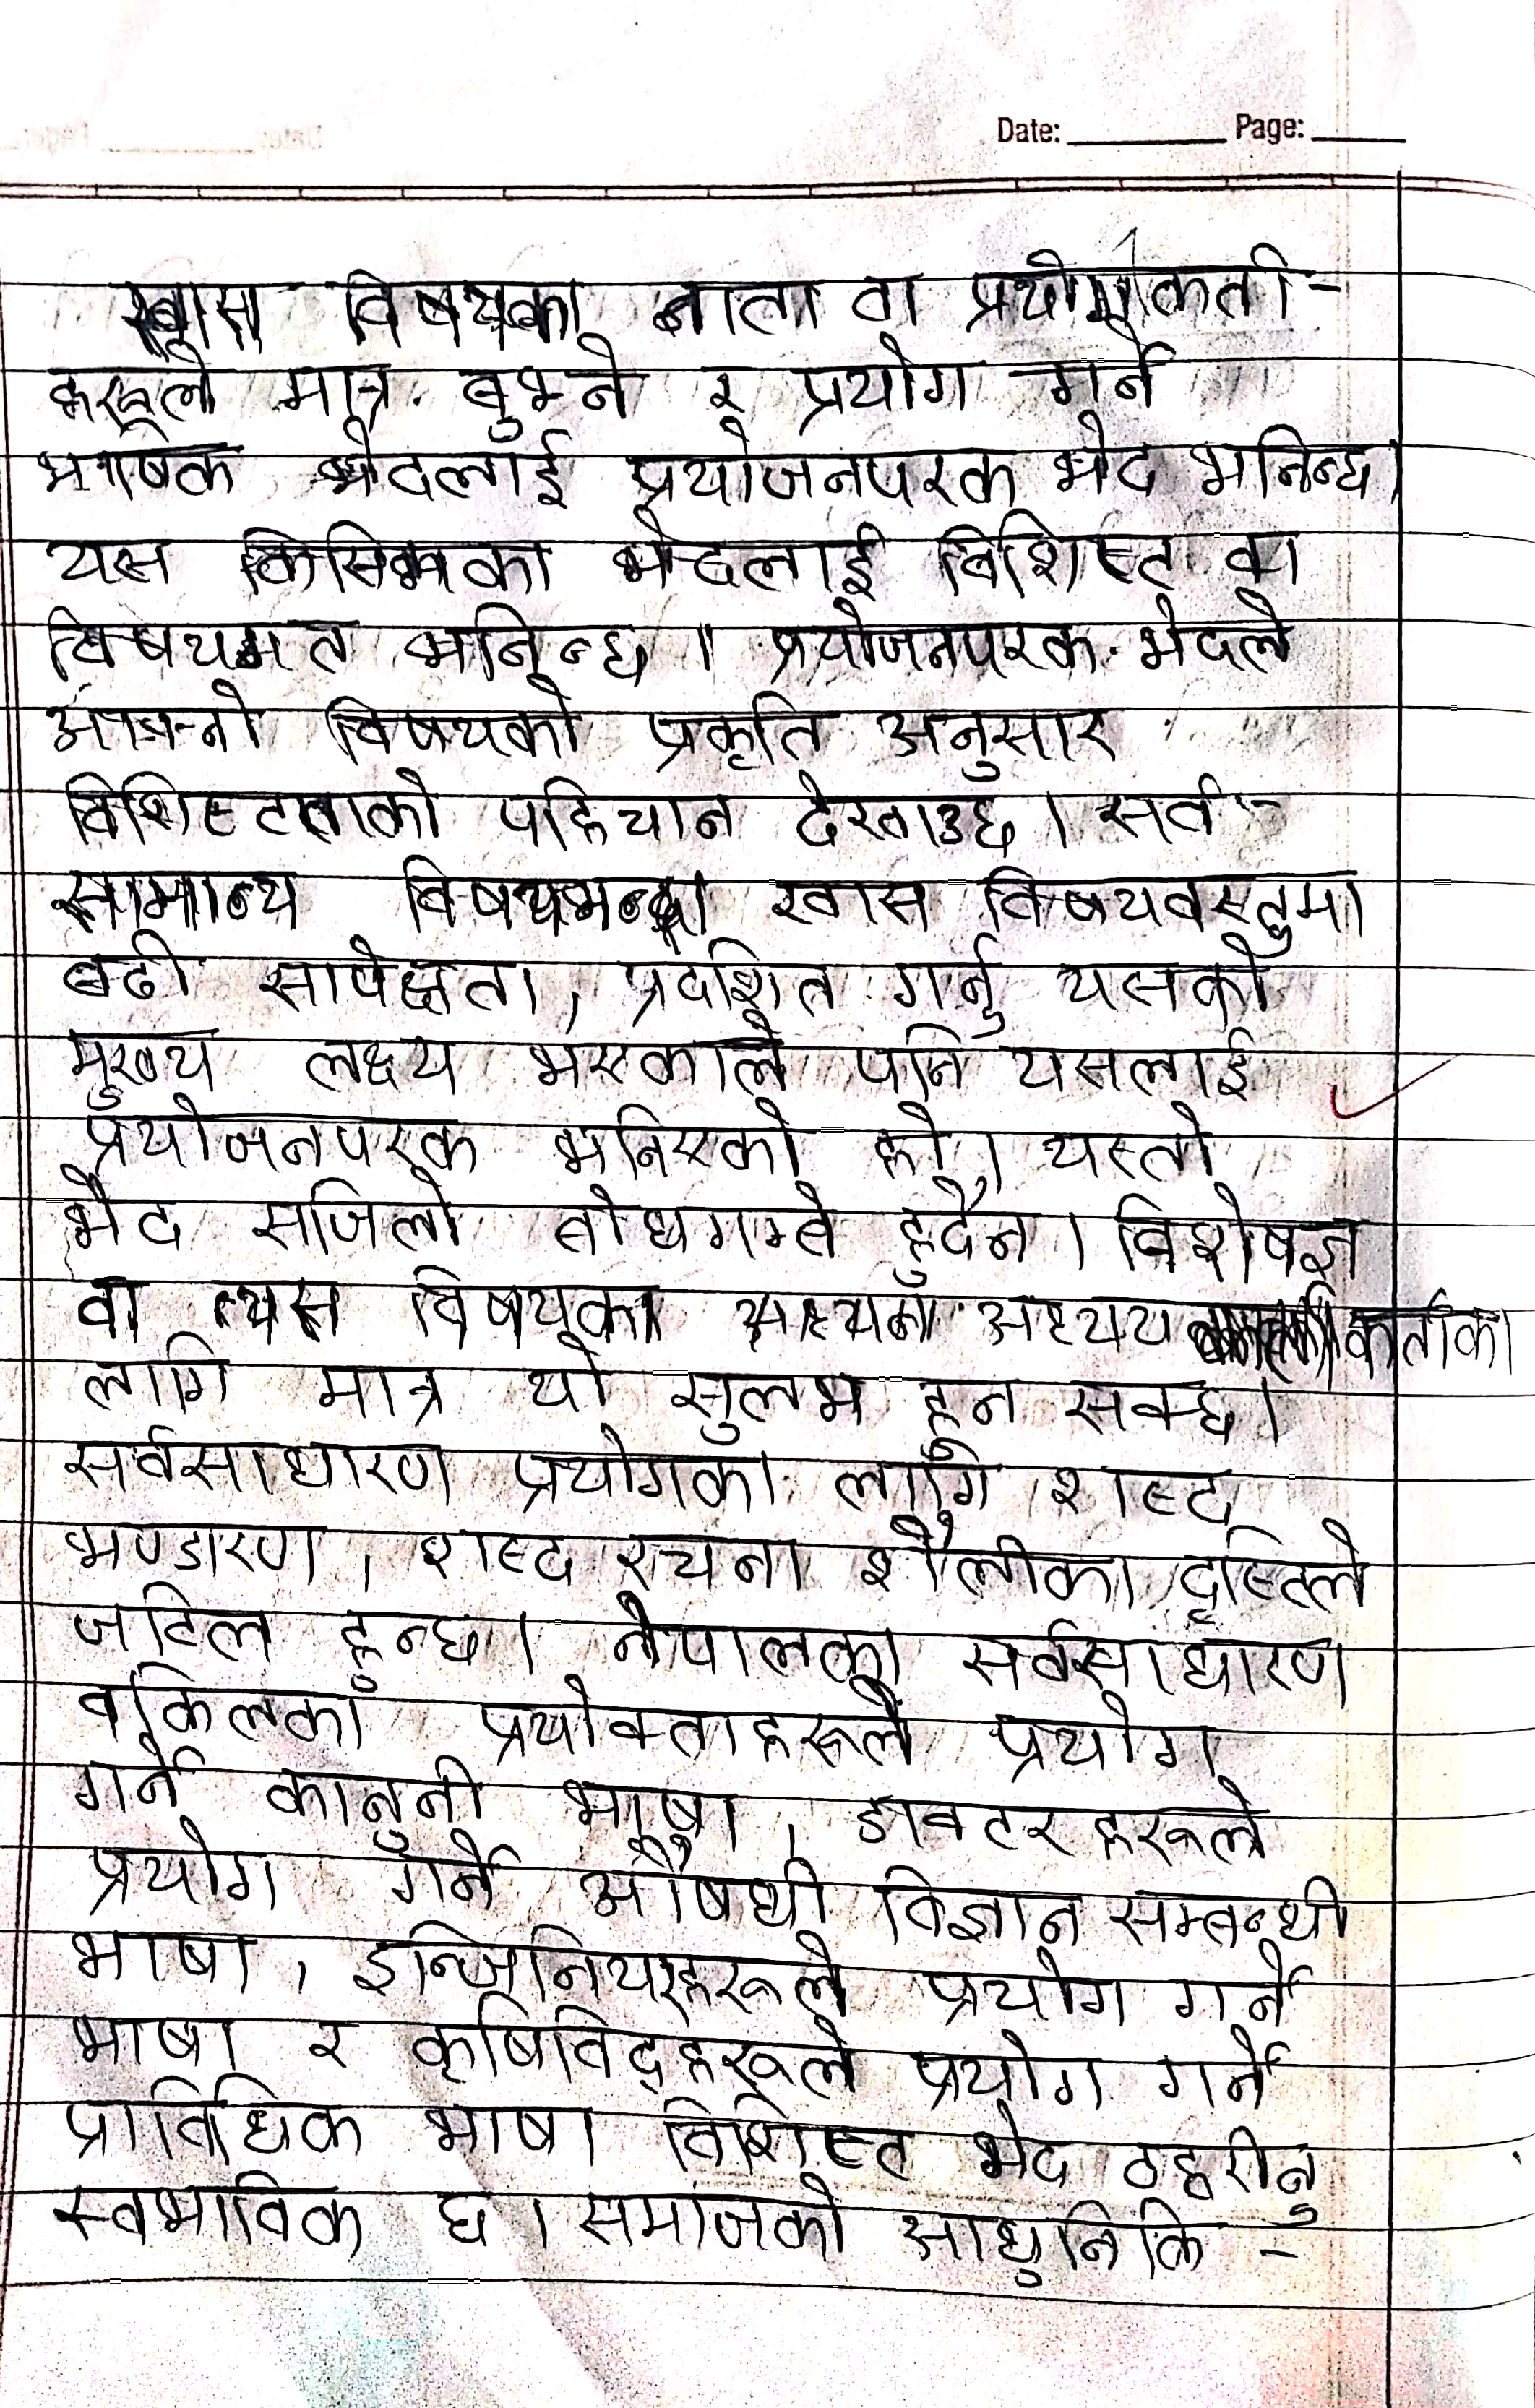 Date: Page:
खास विषयका ज्ञाता वा प्रयोगकर्ता-
हरूले मात्र बुझ्ने र प्रयोग गर्ने
भाषिक भेदलाई प्रयोजनपरक भेद भनिन्छ।
यस किसिमका भेदलाई विशिष्ट वा
विषयगत भनिन्छ । प्रयोजनपरक भेदले
आफ्नो विषयको प्रकृति अनुसार
विशिष्टताको पहिचान देखाउछ । सर्व-
सामान्य विषयभन्दा खास विषयवस्तुमा
बढी सापेक्षता, प्रदशित गर्नु यसको
मुख्य लक्ष्य भएकाले पनि यसलाई
प्रयोजनपरक भनिएको हो । यस्तो
भेद सजिलो बोधगम्ब हुदैन । विशेषज्ञ
वा त्यस विषयका अध्यय कर्ताका
लागि मात्र यो सुलभ हुन सक्छ।
सर्वसाधारण प्रयोगका लागि शब्द
भण्डारण, शब्द रचना शैलीका दृष्टिले
जटिल हुन्छ। नेपालका सर्वसाधारण
वकिलका प्रयोक्ताहरूले प्रयोग
गर्ने कानुनी भाषा, डाक्टरहरूले
प्रयोग गर्ने औषधी विज्ञान सम्बन्धी
भाषा, इन्जिनियरहरूले प्रयोग गर्ने
भाषा र कृषिविद्हरूले प्रयोग गर्ने
प्राविधिक भाषा विशिष्ट भेद ठहरीनु
स्वभाविक छ । समाजको आधुनिकि -